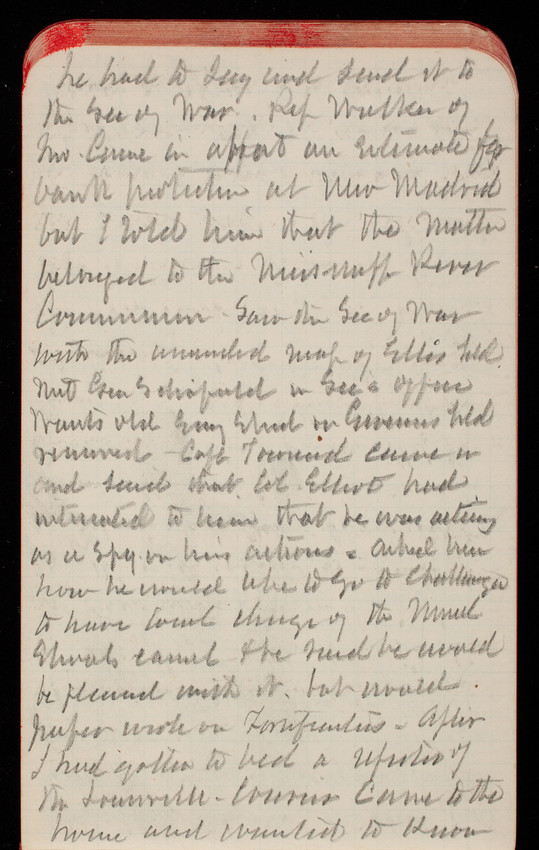 he had to say and send it to
the Sec of War. Rep Walker of
Mo. Came in about an Estimate for
bank protection at New Madrid
but I told him that the Matter
belonged to the Mississippi River
Commission. Saw the Sec of War
with the amended map of Ellis Isld
Met Gen Schofield in Sec's office
Wants old Eng Shed on Governors Isld
removed - Capt Townsend came in
and said that Col. Elliot had
intimated to him that he was acting
as a spy on his actions. Asked him
how he would like to go to Chattanooga
to have local charge of the Mussel
Shoals canal & he said he would
be pleased with it. but would
prefer work on Fortifications. After
I had gotten to bed a reporter of
the Louisville-Courier Came to the
house and wanted to know